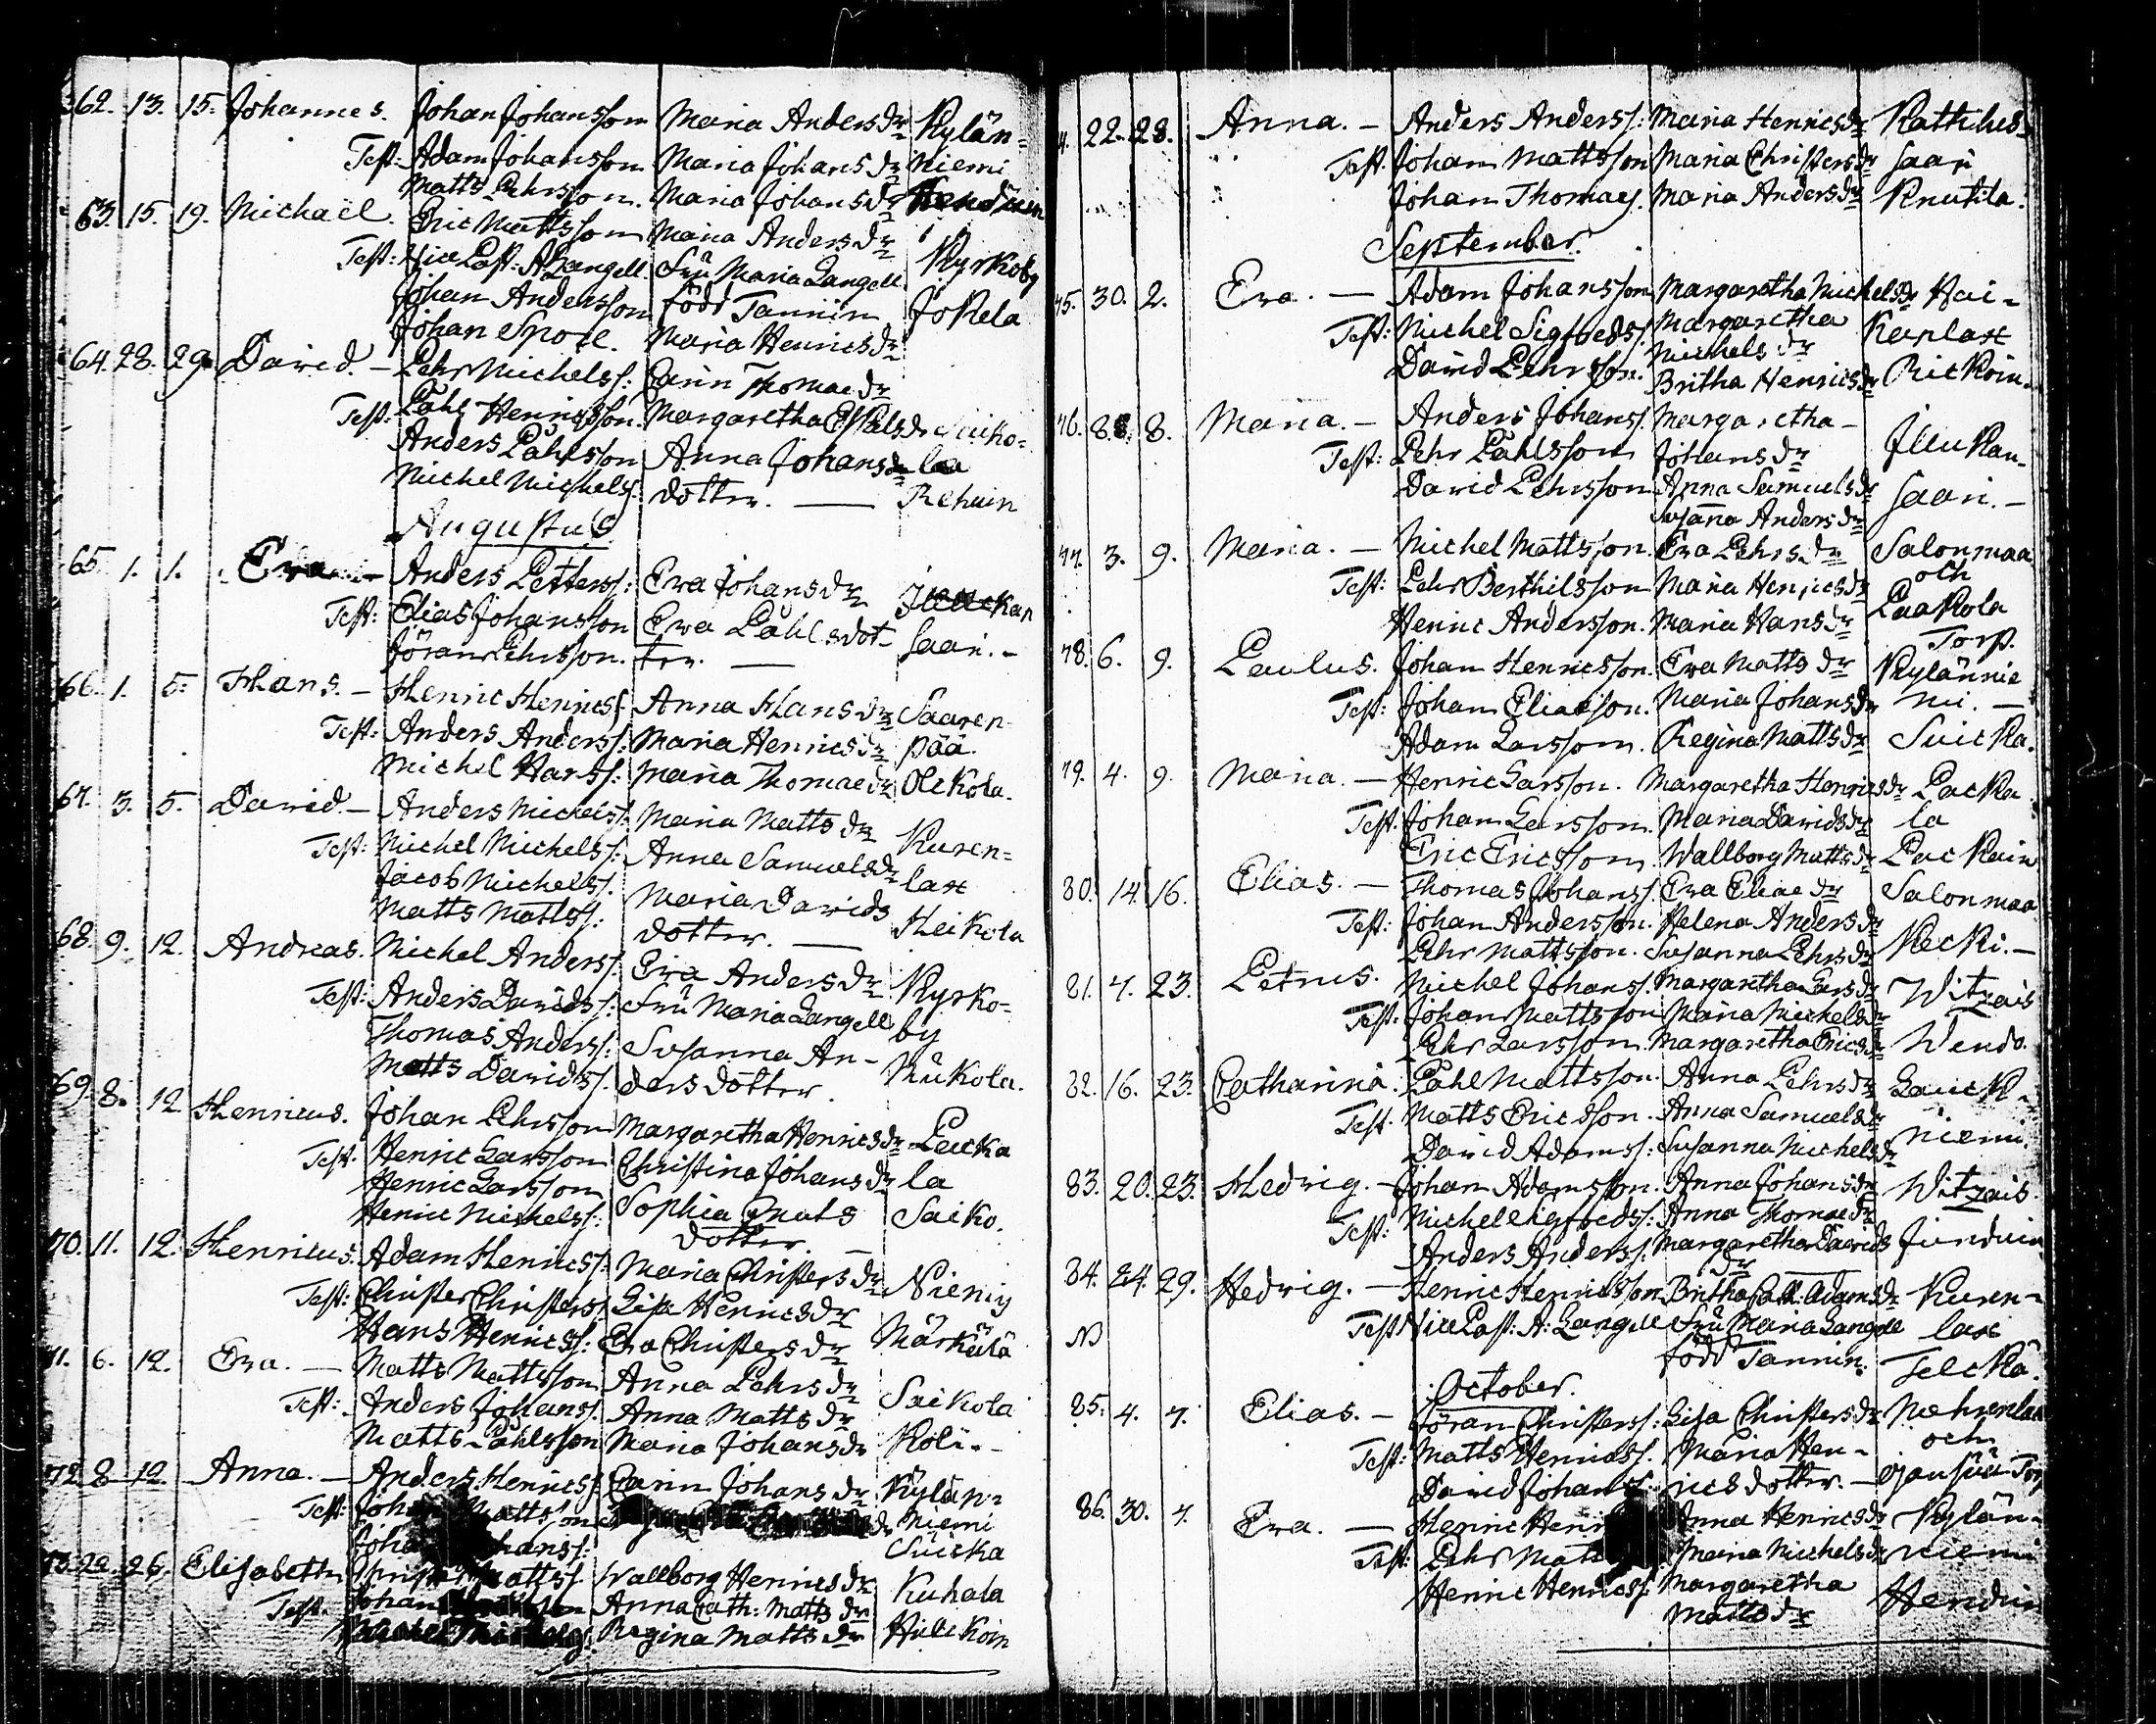 62. 13. 15. Johannes. Johan Johansson Maria Andersdr Kylän=
Test: Adam Johansson Maria Johansdr Niemi
Matts Pehrsson. Maria Johansdr
63. 15. 19. Michaël. Eric Mattsson Maria Andersdr
Test: Vice Past: A Zangell. Fru Maria Zangell Kyrkoby
Johan Andersson född Tannin Jokela
Johan Spore. Maria Henricsdr
64. 28. 29. David. - Pehr Michelss: Carin Thomaedr
Test: Påhl Henricsson. Margaretha Saiko=
Anders Påhlsson Anna Johans la
Michel Michelss. dotter. — Rehuin
Augustus
65. 1. 1. Eva. - Anders Petterss: Eva Johansdr
Test: Elias Johansson Eva Påhlsdot- saari. -
Jöran Pehrsson. ter. —
66. 1. 5. Hans. - Henric Henricss. Anna Hansdr Saaren-
Test: Anders Anderss: Maria Henricsdr pää.
Michel Hanss: Maria Thomaedr Olckola.
67. 3. 5. David. - Anders Michelss: Maria Mattsdr Kuren=
Test: Michel Michelss: Anna Samuelsdr lax
Jacob Michelss. Maria Davids
Matts Mattss. dotter. — Heikola
68. 9. 12. Andreas. Michel Anderss. Eva Andersdr Kyrko=
Test: Anders Davidss: Fru Maria Zangell by
Thomas Anderss: Susanna An-
Matts Davidss. dersdotter. Nukola.
69. 8. 12. Henricus. Johan Pehrsson Margaretha Henricsdr Packa
Test. Henric Larsson Christina Johansdr la
Henric Larsson Sophia Mats
Henric Michelss: dotter. Saiko.
70. 11. 12. Henricus. Adam Henricss: Maria Christersdr
Test: Christer Christerss. Lisa Henricsdr
Hans Henricss: Eva Christersdr Närkälä
71. 6. 12. Eva. — Matts Mattsson Anna Pehrsdr Saikola
Test: Anders Johanss. Anna Mattsdr
Matts Påhlsson Maria Johansdr
72. 8. 12. Anna. - Anders Henricss: Carin Johansdr Kylän=
Test: Johan Mattsson Niemi
Johan Johanss:
73. 22. 26. Elisabeth Mattss. Wallborg Henricsdr Kuhala
Test. Johan Anna Cath: Mattsdr
Michel Regina Mattsdr
22. 28. Anna. - Anders Anderss: Maria Henricsdr
Test. Johan Mattsson Maria Christersdr saari
Johan Thomaes. Maria Andersdr Knutila.
September.
75. 30. 2. Eva. — Adam Johansson Margaretha Michelsdr Hai-
Test: Michel Sigfredss. Margaretha Kanlax
Michelsdr
David Pehrsson. Britha Henricsdr
76. 8. Maria. - Anders Johanss. Margaretha-
Test: Pehr Påhlsson Johansdr
David Pehrsson Anna Samuelsdr saari. -
Susanna Andersdr
77. 3. 9. Maria. - Michel Mattsson. Eva Pehrsdr Salonmaa
och
Test: Pehr Berthilsson Maria Henricsdr Paakola
Henric Andersson. Maria Hansdr Torp.
78. 6. 9. Paulus. Johan Henricsson. Eva Mattsdr Kylännie
Test: Johan Eliasson. Maria Johansdr mi. —
Adam Larsson. Regina Mattsdr Suicka.
79. 4. 9. Maria. - Henric Larsson. Margaretha Henricsdr Packa
Test. Johan Larsson. Maria Davidsdr la
Eric Ericsson Wallborg Mattsdr Packain
80. 14. 16. Elias. - Thomas Johanss. Eva Eliaedr Salonmaa
Test: Johan Andersson. Helena Andersdr
Pehr Mattsson. Susanna Pehrsdr Kecki. -
81. 7. 23. Petrus. Michel Johanss. Margaretha Larsdr Witzais
Test: Johan Mattsson Maria Michelsdr
Pehr Larsson. Margaretha Ericsdr
82. 16. 23. Catharina. Påhl Mattsson. Anna Pehrsdr
Test. Matts Ericsson. Anna Samuelsdr niemi.
David Adamss: Susanna Michelsdr
83. 20. 23. Hedvig. - Johan Adamsson. Anna Johansdr Witzais.
Test: Michel Sigfredss: Anna Thomaedr
Anders Anderss: Margaretha Davids
dr
84. 24. 29. Hedvig. - Henric Henricsson Britha Cath: Adamsdr Kuren-
NB Test Vice Past: A: Zangell Fru Maria Zangell lax
född Tannin. Telckä.
October.
85. 4. 7. Elias. - Jöran Christerss: Lisa Christersdr
Test: Matts Henricss. Maria Hen- och
David Johanss. ricsdotter. -
86. 30. 7. Eva. — Henric Anna Henricsdr Kylän-
Test: Pehr Maria Michelsdr niemi
Henric Henricss. Margaretha
Mattsdr